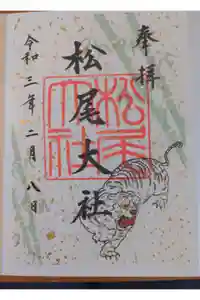 奉拝
松尾大社
松尾大社
令和三年二月八日